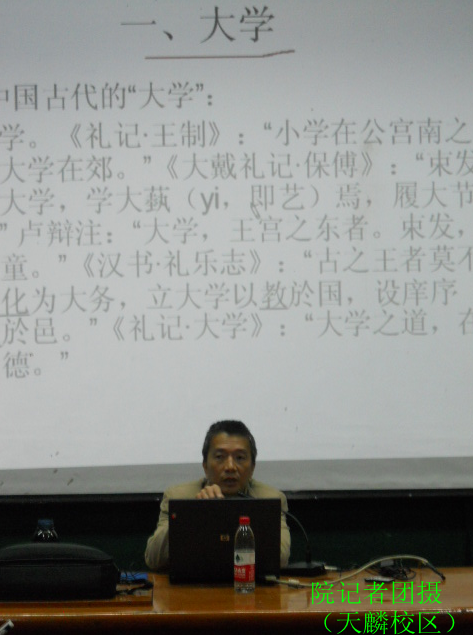 一、大学
中国古代的“大学”：
学。《礼记·王制》：“小学在公宫南之
大学在郊。”《大戴礼记·保傅》：“束发
大学，学大蓺（yi，即艺）焉，履大节
”卢辩注：“大学，王宫之东者。束发，
童。”《汉书·礼乐志》：“古之王者莫不
化为大务，立大学以教於国，设庠序
於邑。”《礼记·大学》：“大学之道，在
德。”
hp
院记者团摄
（天麟校区）